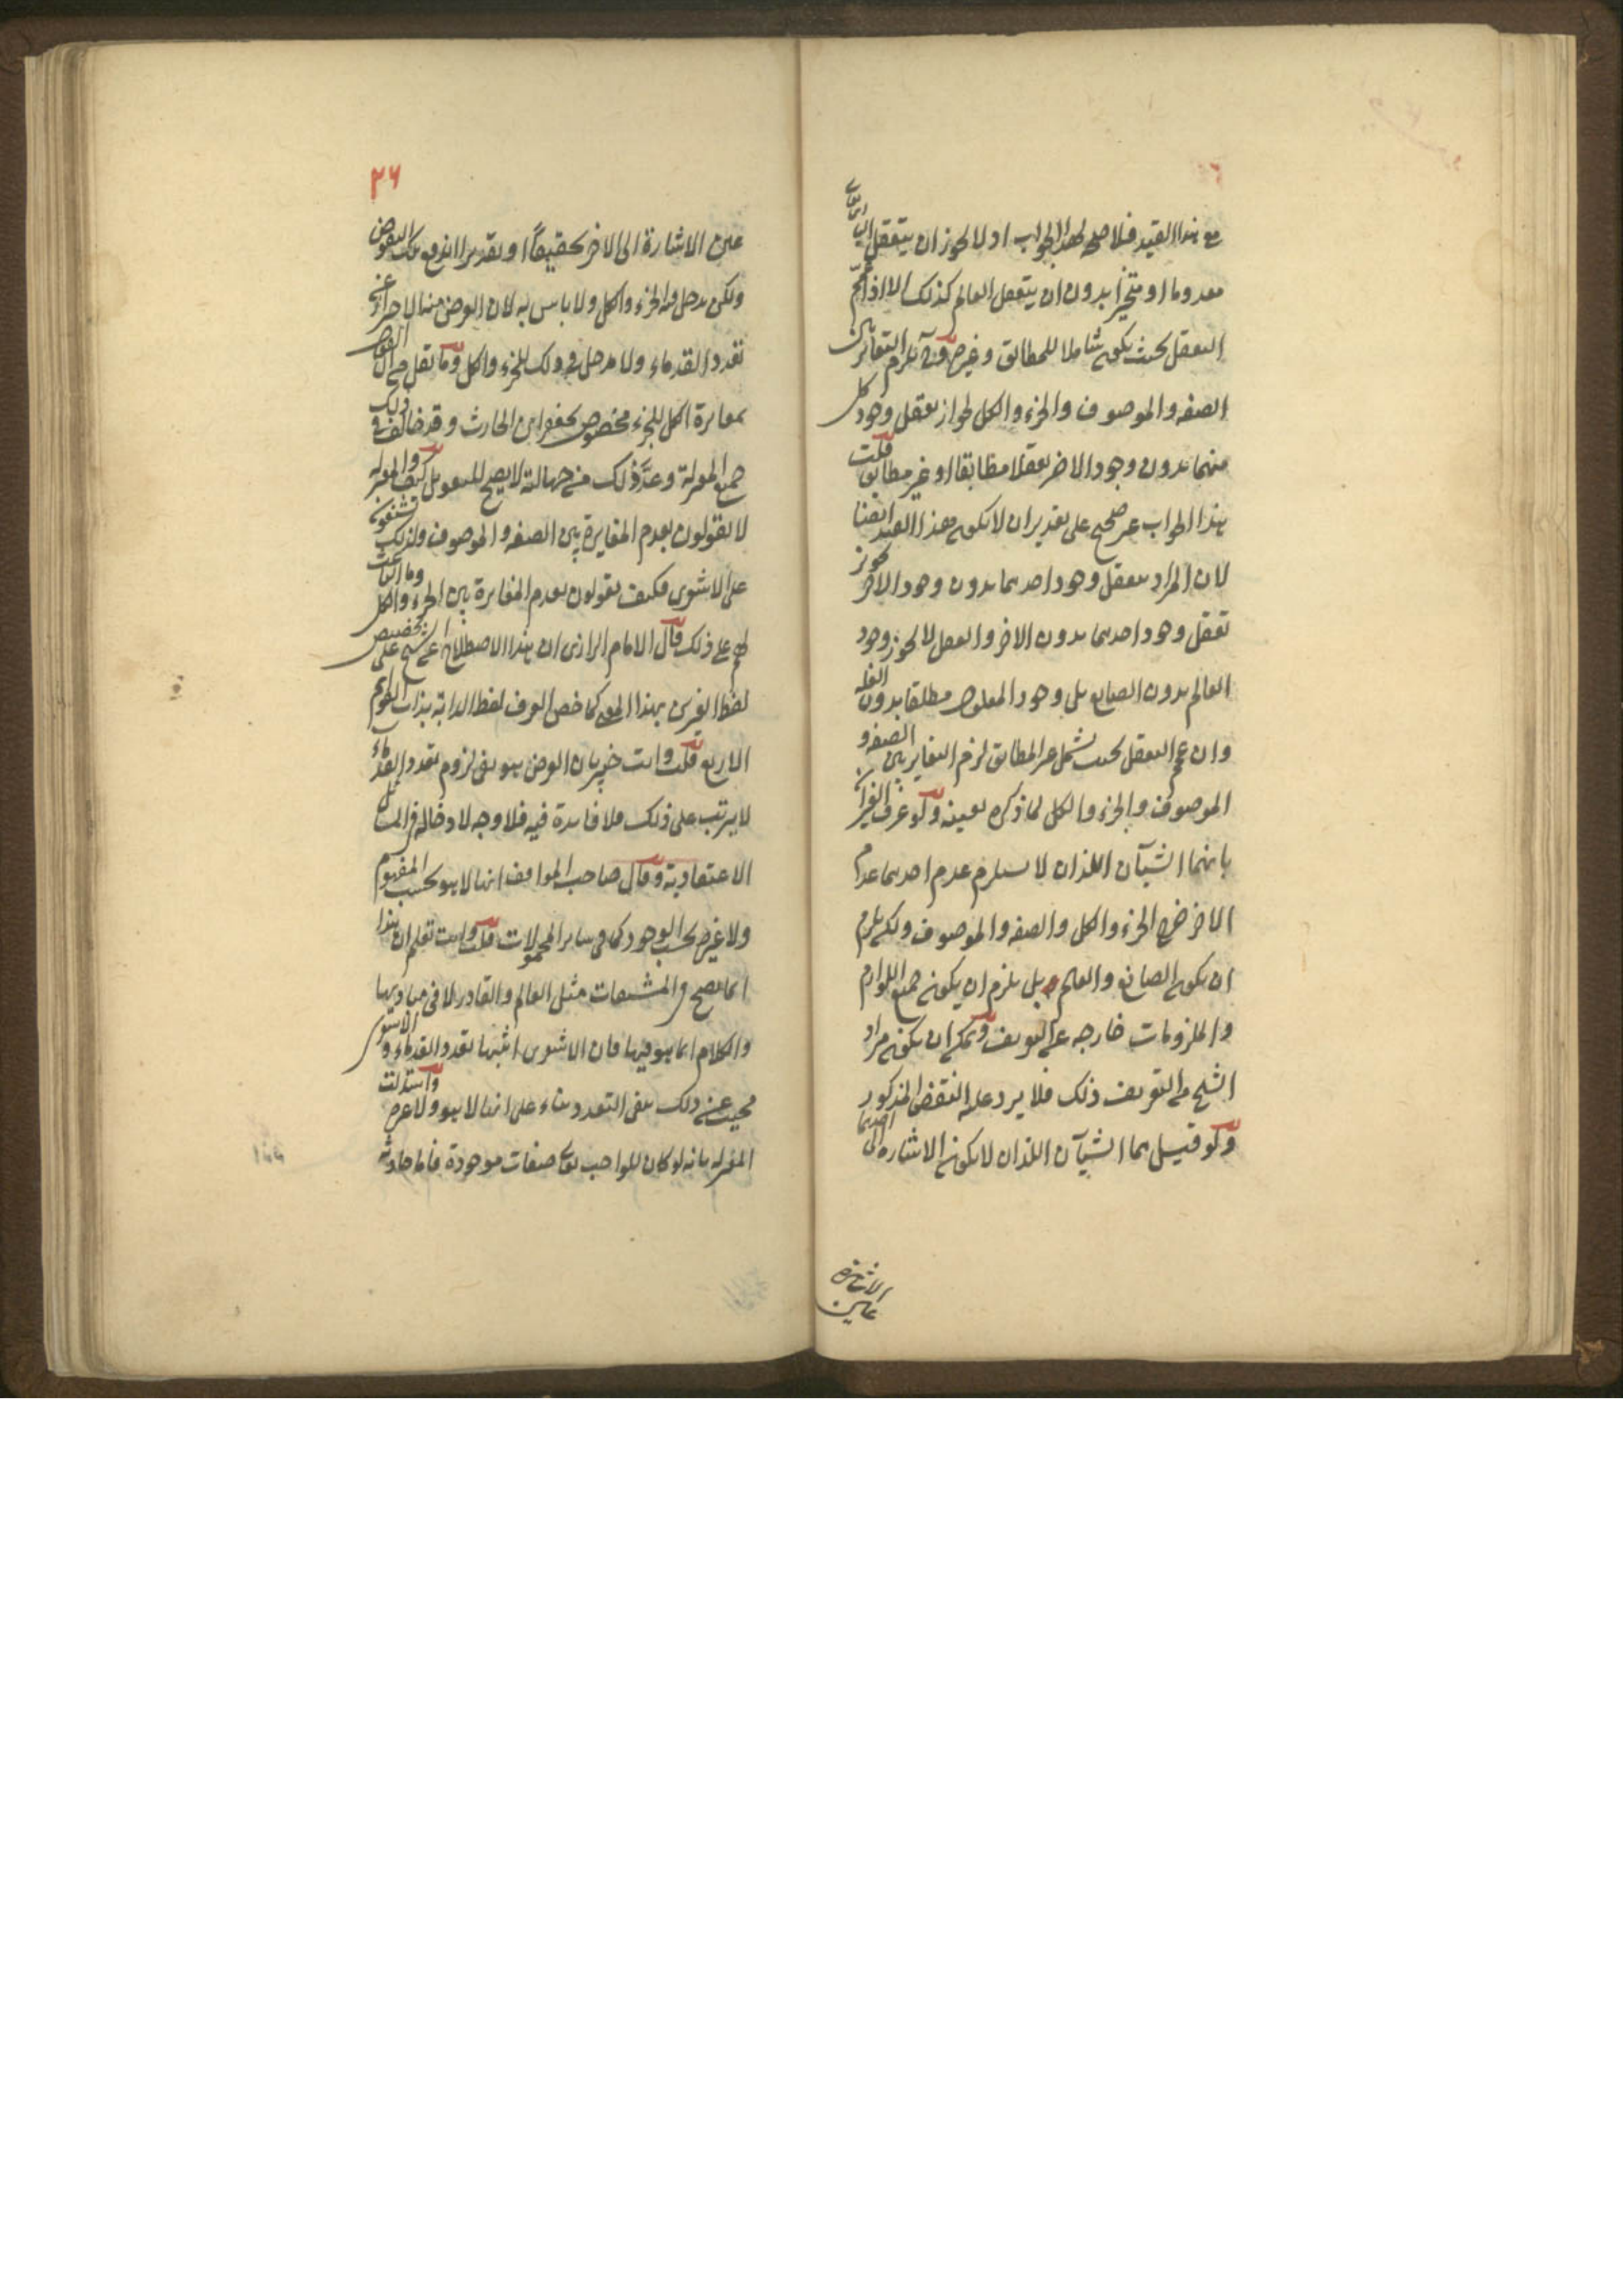 مع هذا القيد فلا صحة لهذا الجواب اذ لا يجوز ان يتعقل الباري تعالى
معدوما او متحيزا بدون ان يتعقل العالم كذلك الا اذا عمم
التعقل بحيث يكون شاملا للمطابق وغيره وح يلزم التغاير بين
الصفه والموصوف والجزء والكل لجواز تعقل وجود كل
منهما بدون وجود الاخر تعقلا مطابقا او غير مطابق قلت
هذا الجواب غير صحيح على تقدير ان لا يكون هذا القيد ايضا
لان المراد بتعقل وجود احدهما بدون وجود الاخر تجويز
تعقل وجود احدهما بدون الاخر والعقل لا يجوز وجود
العالم بدون الصانع بل وجود المعلول مطلقا بدون العلة
وان عمم التعقل بحيث يشمل غير المطابق لزم التغاير بين الصفه و
الموصوف والجزء والكل لما ذكره بعينه ولو عرف الغيران
بانهما الشيآن اللذان لا يستلزم عدم احدهما عدم
الاخر خرج الجزء والكل والصفه والموصوف ولكن يلزم
ان يكون الصانع والعالم بل يلزم ان يكون جميع اللوازم
والملزومات خارجه عن التعريف ويمكن ان يكون مراد
الشيخ من التعريف ذلك فلا يرد عليه النقض المذكور
ولو قيل هما الشيآن اللذان لا يكون الاشاره الى احدهما
الاشارة
عين
٢٦
عين الاشارة الى الاخر تحقيقاً او تقديرا اندفع تلك النقوض
ولكن يدخل فيه الجزء والكل ولا باس به لان الغرض منه الاحتراز عن
تعدد القدماء ولا مدخل في ذلك للجزء والكل وما نقل من ان القول
بمغايرة الكل للجزء مخصوص بجعفر ابن الحارث وقد خالف في ذلك
جميع المعتزلة وعدّ ذلك من جهالته لا يصح للتعويل كيف والمعتزلة
لا يقولون بعدم المغايرة بين الصفه والموصوف ولذلك يشنعون
على الاشعري فكيف يقولون بعدم المغايرة بين الجزء والكل وما الباعث
لهم على ذلك قال الامام الرازي ان هذا الاصطلاح من الشيخ على تخصيص
لفظ الغيرين بهذا المعنى كما خص العرف لفظ الدابة بذات القوائم
الاربع قلت وانت خبير بان الغرض هو نفي لزوم تعدد القدماء
لا يترتب على ذلك فلا فايدة فيه فلا وجه لادخاله في المسائل
الاعتقادية وقال صاحب المواقف انها لا هو بحسب المفهوم
ولا غيره بحسب الوجود كما في ساير المحمولات قلت وانت تعلم ان هذا
انما يصح في المشتقات مثل العالم والقادر لا في مباديها
والكلام انما هو فيها فان الاشعري اثبتها تعدد القدماء والاشعري
مجيب عن ذلك بنفي التعدد بناء على انها لا هو ولا غيره واستدلت
المعتزله بانه لو كان للواجب تعالى صفات موجودة فاما حادثة